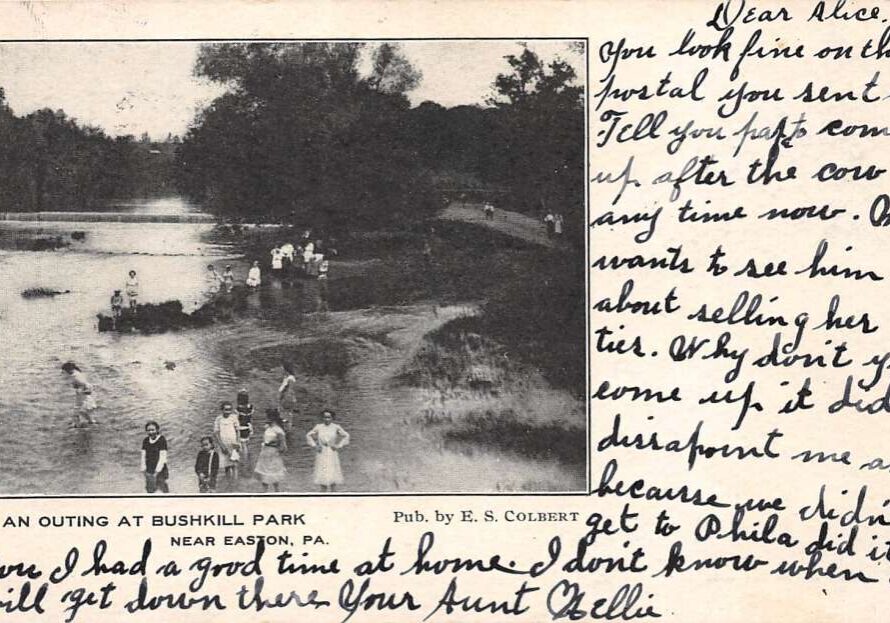 Dear Alice.
You look fine on th
postal you sent
Tell you com
up after the cow
any time now.
wants to see him
about selling her
tier. Why don't y
come up it did
dissapoint me a
because we didn
get to Phila did it
AN OUTING AT BUSHKILL PARK
NEAR EASTON, PA.
Pub. by E. S. COLBERT
ou I had a good time at home. I don't know when
ill get down there Your Aunt Nellie